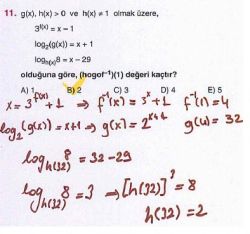 11. g(x), h(x) > 0 ve h(x) ≠ 1 olmak üzere,
3^f(x) = x − 1
log₂(g(x)) = x + 1
log_h(x) 8 = x − 29
olduğuna göre, (hogof⁻¹)(1) değeri kaçtır?
A) 1 B) 2 C) 3 D) 4 E) 5
x = 3^f(x) + 1 ⇒ f⁻¹(x) = 3^x + 1 f⁻¹(1) = 4
log₂(g(x)) = x+1 ⇒ g(x) = 2^x+1 g(4) = 32
log_h(32) 8 = 32 − 29
log_h(32) 8 = 3 ⇒ [h(32)]³ = 8
h(32) = 2